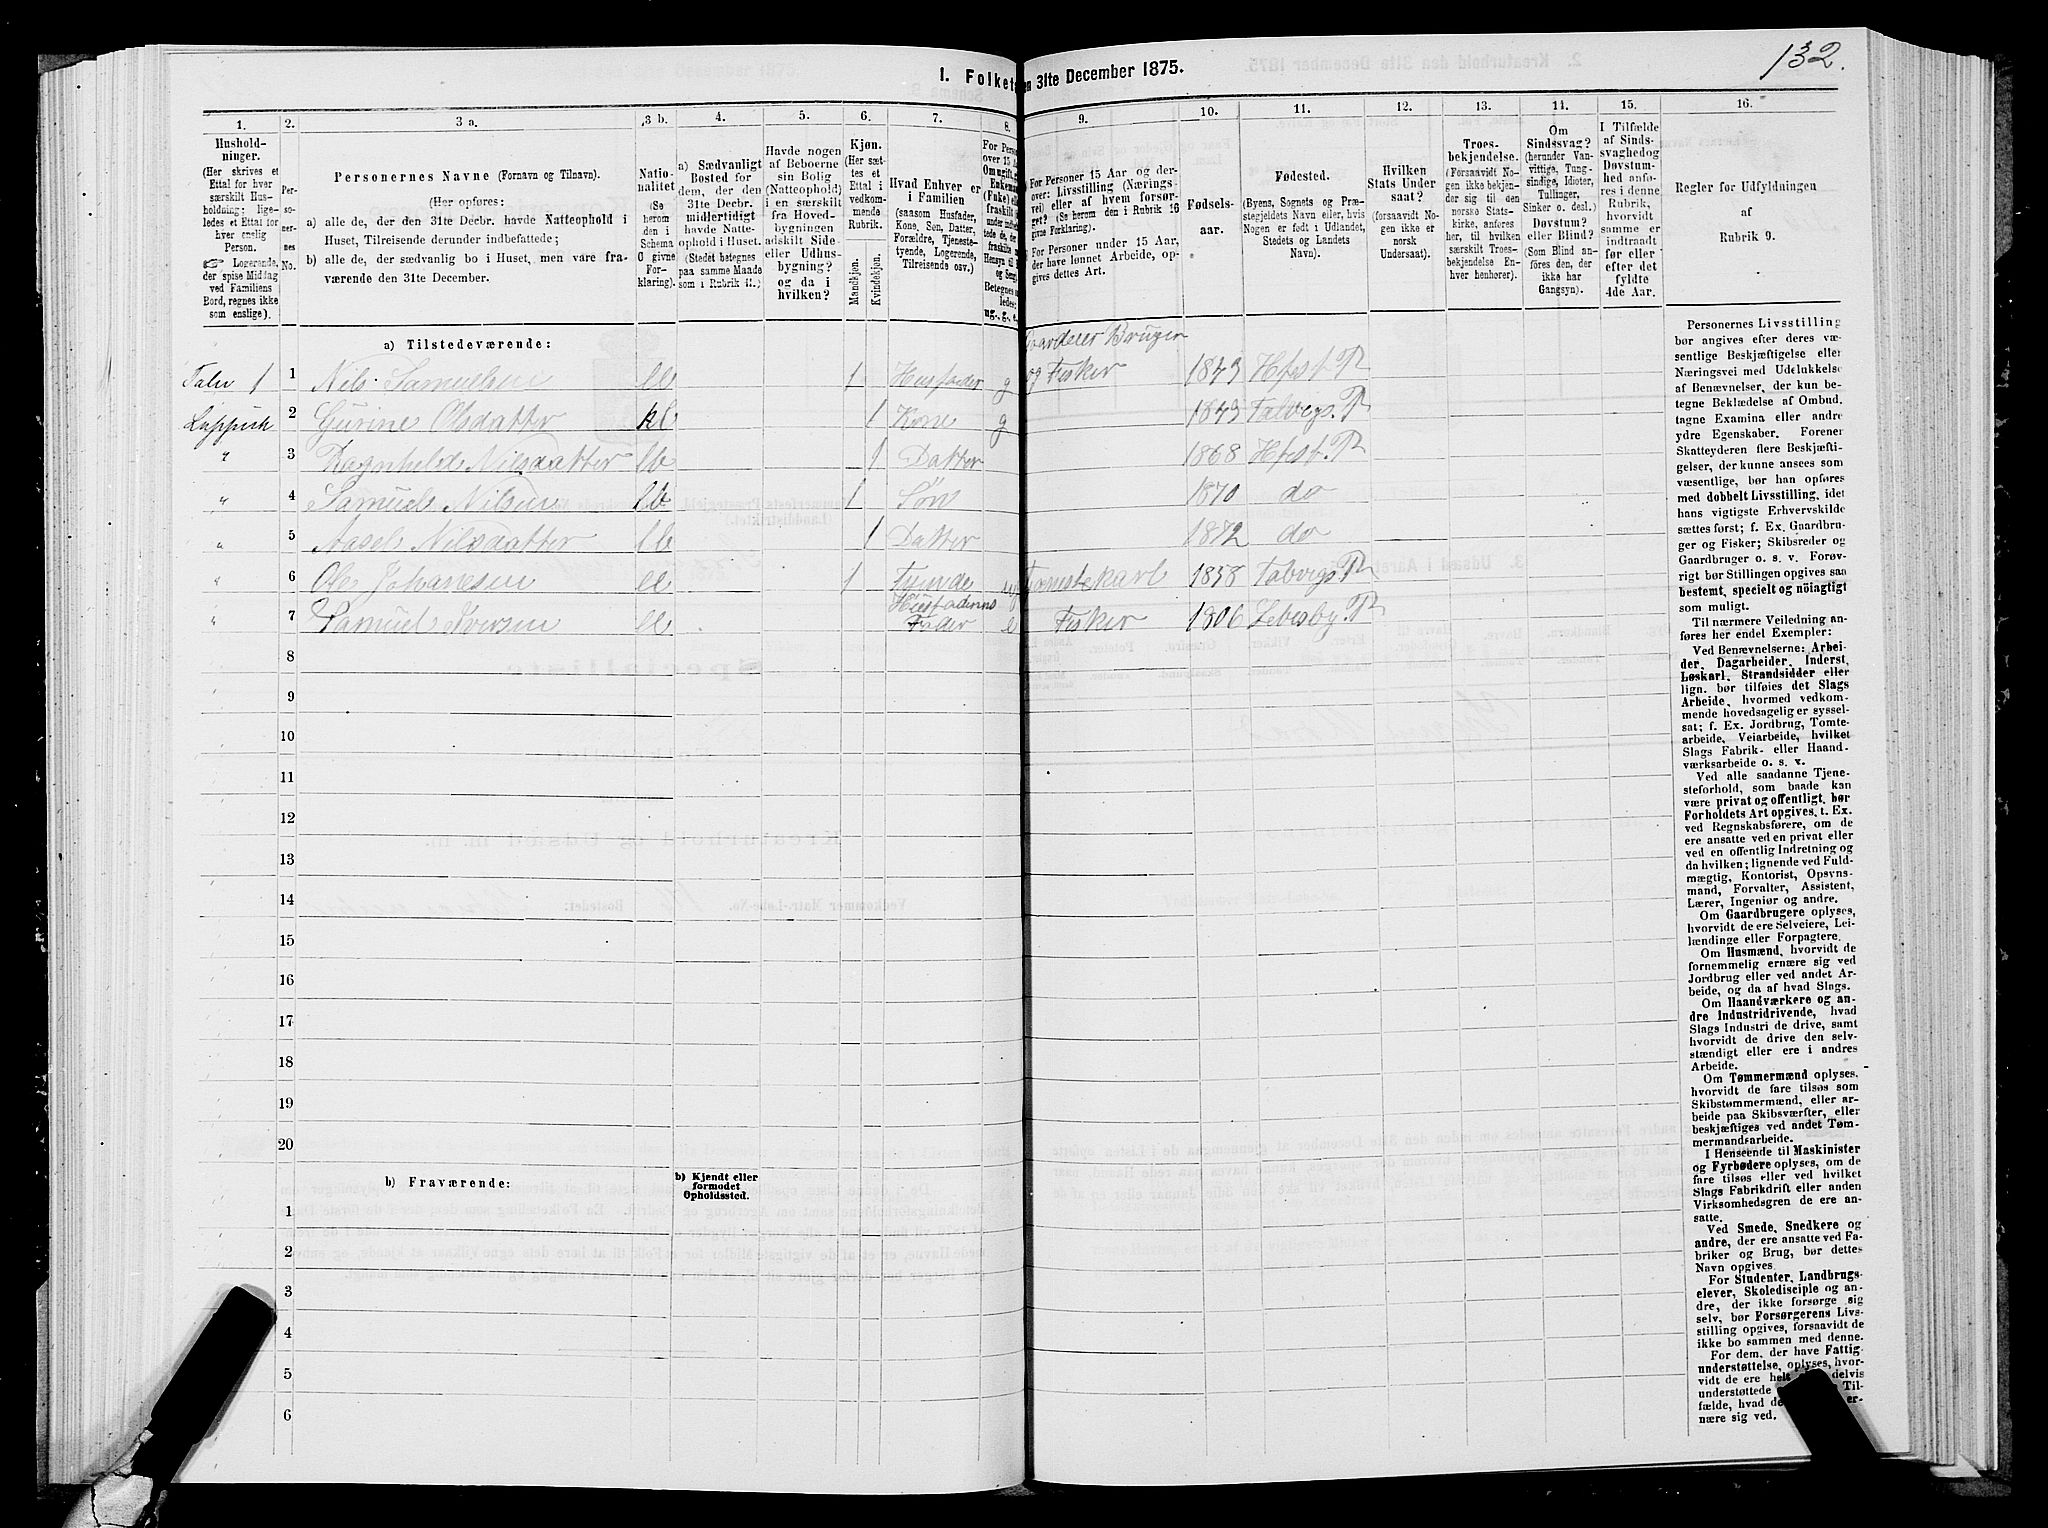 132.
1. Folket
en 31te December 1875.
1.
Hushold-
ninger.
(Her skrives et
Ettal for hver
særskilt Hus-
holdning; lige-
ledes et Ettal for
hver enslig
Person.
☞ Logerende,
der spise Middag
ved Familiens
Bord, regnes ikke
som enslige).
2.
Per-
so-
ner-
nes
No.
3 a.
Personernes Navne (Fornavn og Tilnavn).
(Her opføres:
a) alle de, der den 31te Decbr. havde Natteophold i
Huset, Tilreisende derunder indbefattede;
b) alle de, der sædvanlig bo i Huset, men vare fra-
værende den 31te December.
3 b.
Natio-
nalitet
(Se
herom
den i
Schema
O givne
For-
klaring).
4.
a) Sædvanligt
Bosted for
dem, der den
31te Decbr.
midlertidigt
havde Natte-
ophold i Huset.
(Stedet betegnes
paa samme Maade
som i Rubrik 11.)
5.
Havde nogen
af Beboerne
sin Bolig
(Natteophold)
i en særskilt
fra Hoved-
bygningen
adskilt Side-
eller Udhus-
bygning?
og da i
hvilken?
6.
Kjøn.
(Her sæt-
tes et
Ettal i
vedkom-
mende
Rubrik.
Mandkjøn.
Kvindekjøn.
7.
Hvad Enhver er
i Familien
(saasom Husfader,
Kone, Søn, Datter,
Forældre, Tjeneste-
tyende, Logerende,
Tilreisende osv.)
8.
For Person
over 15 Aar
9.
For Personer 15 Aar og der-
over: Livsstilling (Nærings-
vei) eller af hvem forsør-
get? (Se herom den i Rubrik 16
givne Forklaring).
For Personer under 15 Aar,
der have lønnet Arbeide, op-
gives dettes Art.
10.
Fødsels-
aar.
11.
Fødested.
(Byens, Sognets og Præ-
stegjeldets Navn eller, hvis
Nogen er født i Udlandet,
Stedets og Landets
Navn).
12.
Hvilken
Stats Under-
saat?
(forsaavidt No-
gen ikke er
norsk
Undersaat).
13.
Troes-
bekjendelse.
(Forsaavidt No-
gen ikke bekjen-
der sig til den
norske Stats-
kirke, anføres
her, til hvilken
særskilt Troes-
bekjendelse En-
hver henhører).
14.
Om
Sindssvag?
(herunder Van-
vittige, Tung-
sindige, Idioter,
Tullinger,
Sinker o. desl.)
Døvstum?
eller Blind?
(Som Blind an-
føres den, der
ikke har
Gangsyn).
15.
I Tilfælde
af Sinds-
svaghed og
Døvstum-
hed anfø-
res i denne
Rubrik,
hvorvidt
samme er
indtraadt
før eller
efter det
fyldte
4de Aar.
16.
Regler for Udfyldningen
af
Rubrik 9.
a) Tilstedeværende:
Gaardeier Bruger
1 1 Nils Samuelsen ll 1 Husfader g og Fisker 1843 Hfest. P
2 Gurine Olsdatter kl 1 Kone g 1843 Talvigs. P
" 3 Ragnhild Nilsdatter lb 1 Datter 1868 Hfest. P
" 4 Samuel Nilsen lb 1 Søn 1870 do
" 5 Aasel Nilsdatter lb 1 Datter 1872 do
" 6 Ole Johanesen ll 1 Tyende ug Tjenestekarl 1858 Talvigs. P
Husfaderens
" 7 Samuel Iversen ll Fader e Fisker 1806 Lebesby. P
8
9
10
11
12
13
14
15
16
17
18
19
20
b) Fraværende:
b) Kjendt eller
formodet
Opholdssted.
1
2
3
4
5
6
Personernes Livsstilling
bør angives efter deres væ-
sentlige Beskjæftigelse eller
Næringsvei med Udelukkelse
af Benævnelser, der kun be-
tegne Beklædelse af Ombud,
tagne Examina eller andre
ydre Egenskaber. Forener
Skatteyderen flere Beskjæfti-
gelser, der kunne ansees som
væsentlige, bør han opføres
med dobbelt Livsstilling, idet
hans vigtigste Erhvervskilde
sættes først; f. Ex. Gaardbru-
ger og Fisker; Skibsreder og
Gaardbruger o. s. v. Forøv-
rigt bør Stillingen opgives saa
bestemt, specielt og nöiagtigt
som muligt.
Til nærmere Veiledning an-
føres her endel Exempler:
Ved Benævnelserne: Arbei-
der, Dagarbeider, Inderst,
Løskarl, Strandsidder eller
lign. bør tilføies det Slags
Arbeide, hvormed vedkom-
mende hovedsagelig er syssel-
sat; f. Ex. Jordbrug, Tomte-
arbeide, Veiarbeide, hvilket
Slags Fabrik- eller Haand-
værksarbeide o. s. v.
Ved alle saadanne Tjene-
steforhold, som baade kan
være privat og offentligt, bør
Forholdets Art opgives, t. Ex.
ved Regnskabsførere, om de
ere ansatte ved en privat eller
ved en offentlig Indretning og
da hvilken; lignende ved Fuld-
mægtig, Kontorist, Opsyns-
mand, Forvalter, Assistent,
Lærer, Ingeniør og andre.
Om Gaardbrugere oplyses,
hvorvidt de ere Selveiere, Lei-
lændinge eller Forpagtere.
Om Husmænd, hvorvidt de
fornemmelig ernære sig ved
Jordbrug eller ved andet Ar-
beide, og da af hvad Slags.
Om Haandværkere og an-
dre Industridrivende, hvad
Slags Industri de drive, samt
hvorvidt de drive den selv-
stændigt eller ere i andres
Arbeide.
Om Tømmermænd oplyses,
hvorvidt de fare tilsøs som
Skibstømmermænd, eller ar-
beide paa Skibsværfter, eller
beskjæftiges ved andet Tøm-
mermandsarbeide.
I Henseende til Maskinister
og Fyrbødere oplyses, om de
fare tilsøs eller ved hvilket
Slags Fabrikdrift eller anden
Virksomhedsgren de ere an-
satte.
Ved Smede, Snedkere og
andre, der ere ansatte ved Fa-
briker og Brug, bør dettes
Navn opgives.
For Studenter, Landbrugs-
elever, Skoledisciple og an-
dre, der ikke forsørge sig
selv, bør Forsørgerens Livs-
stilling opgives, forsaavidt de
ikke bo sammen med denne.
For dem, der have Fattig-
understøttelse, oplyses, hvor-
vidt de ere delvis
understøttede Til-
fælde, hvad er-
nære sig ved.